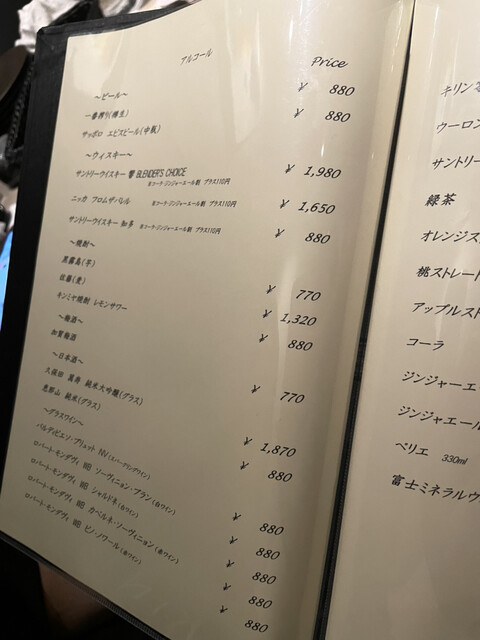 アルコール
Price
～ビール～
一番搾り(樽生) ¥ 880
サッポロ エビスビール(中瓶) ¥ 880
～ウィスキー～
サントリーウイスキー 響 BLENDER'S CHOICE ¥ 1,980
※コーク・ジンジャーエール割 プラス110円
ニッカ フロムザバレル ※コーク・ジンジャーエール割 プラス110円 ¥ 1,650
サントリーウイスキー 知多 ※コーク・ジンジャーエール割 プラス110円 ¥ 880
～焼酎～
黒霧島(芋) ¥ 770
佐藤(麦) ¥ 1,320
キンミヤ焼酎 レモンサワー ¥ 880
～梅酒～
加賀梅酒 ¥ 770
～日本酒～
久保田 萬寿 純米大吟醸(グラス) ¥ 1,870
恵那山 純米(グラス) ¥ 880
～グラスワイン～
バルディビエソ・ブリュット NV(スパークリングワイン) ¥ 880
ロバート・モンダヴィ WB ソーヴィニョン・ブラン(白ワイン) ¥ 880
ロバート・モンダヴィ WB シャルドネ(白ワイン) ¥ 880
ロバート・モンダヴィ WB カベルネ・ソーヴィニョン(赤ワイン) ¥ 880
ロバート・モンダヴィ WB ピノ・ノワール(赤ワイン) ¥ 880
キリン
ウーロン
サントリー
緑茶
オレンジス
桃ストレート
アップルスト
コーラ
ジンジャーエ
ジンジャエール
ペリエ 330ml
富士ミネラルウ